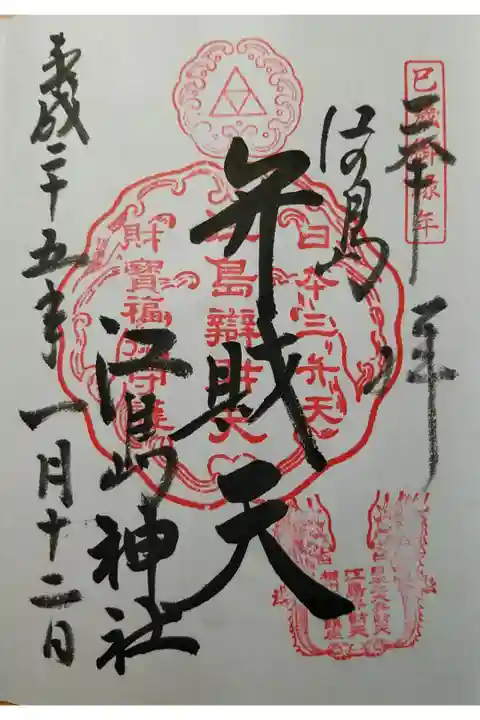 奉拝
巳歳御縁年
江の島
弁財天
江島神社
平成二十五年一月十二日
日本三弁天
江島辯財天
財寶福徳守護